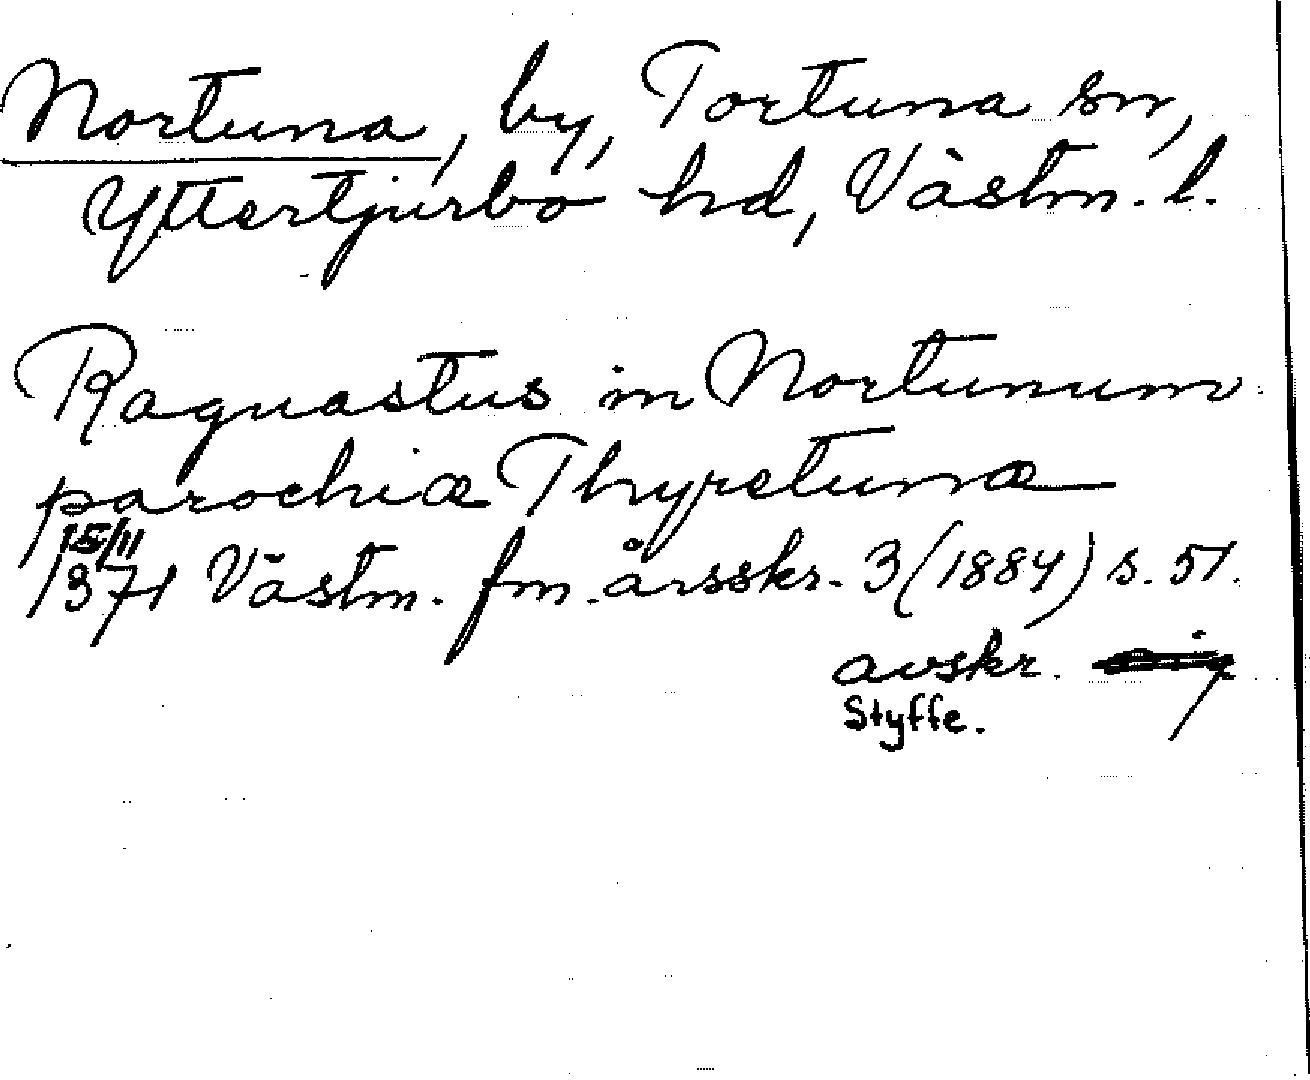 Nortuna, by, Tortuna sn,
Yttertjurbo hd, Västm. l.
Raguastus in Nortunum
parochiæ Thyretuna
15/11
1371 Västm. fm. årsskr. 3 (1884) s. 51.
avskr.
Styffe.